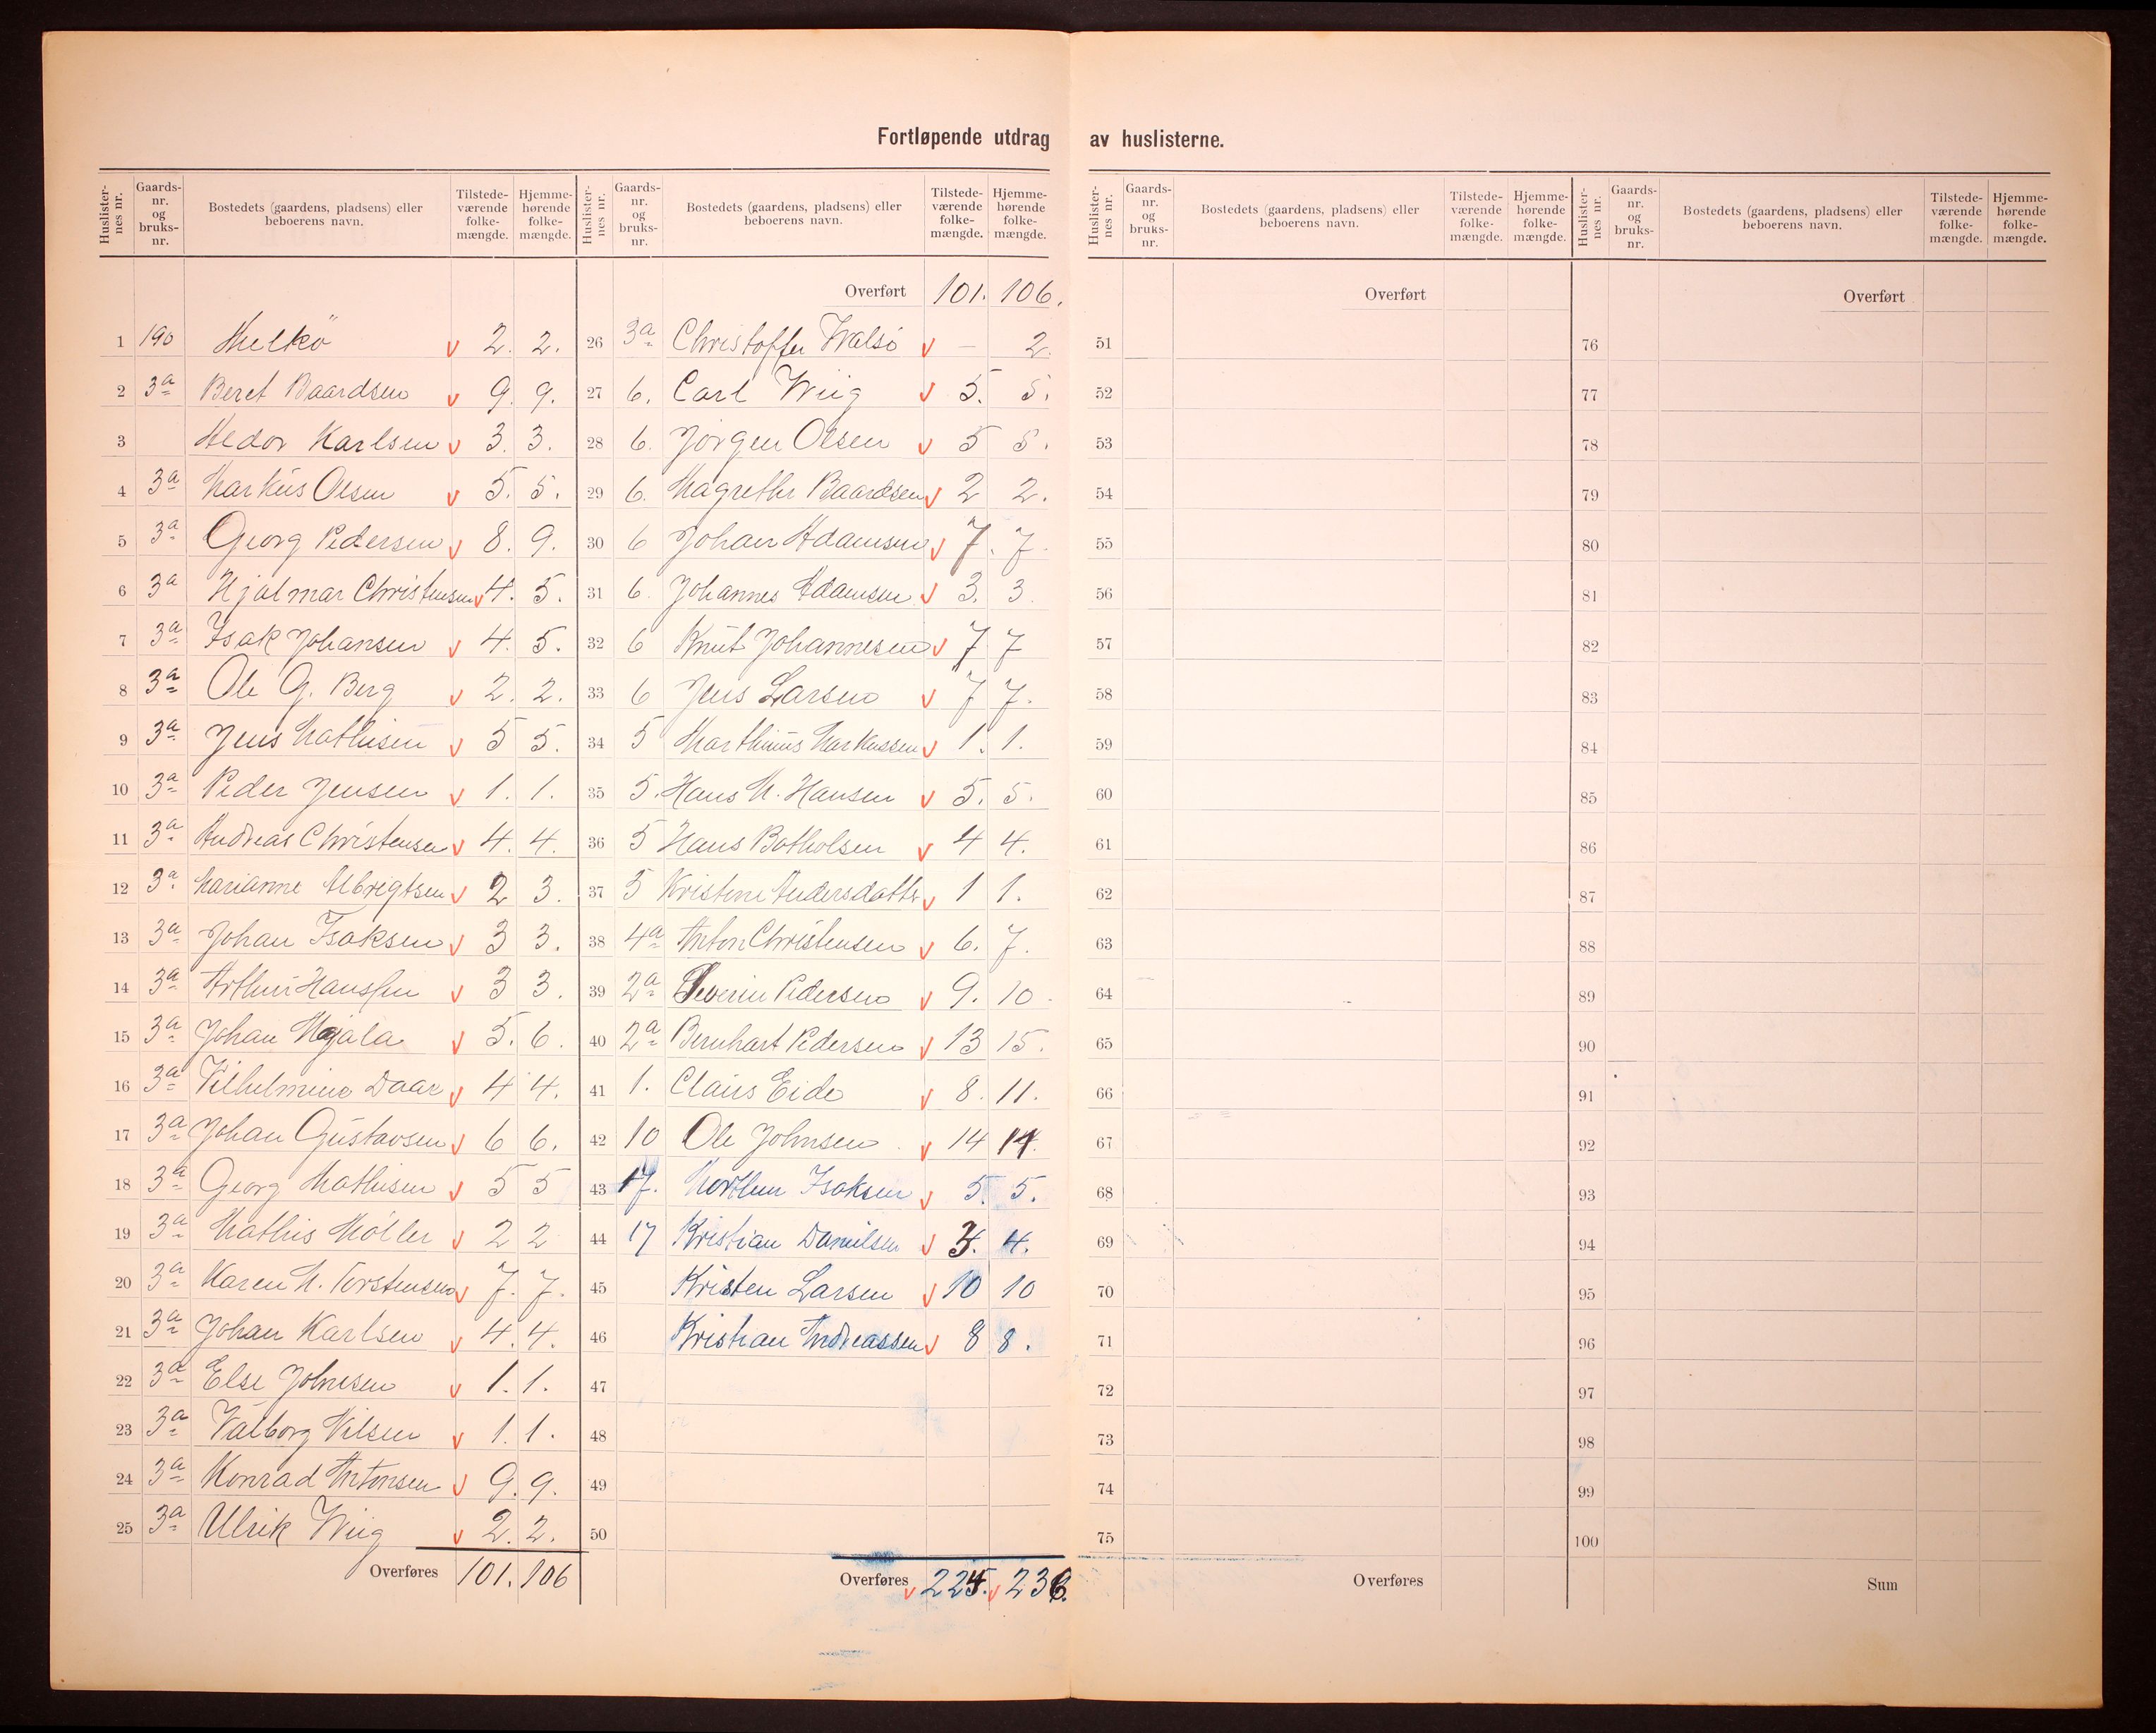 Fortløpende utdrag av huslisterne.
Huslisternes nr. Gaardsnr. og bruksnr. Bostedets (gaardens, pladsens) eller beboerens navn. Tilstedeværende folkemængde. Hjemmehørende folkemængde.
1 190 Melkö v 2. 2.
2 3a Beret Baardsen v 9. 9.
3 Aldor Karlsen v 3. 3.
4 3a Markus Olsen v 5. 5.
5 3a Georg Pedersen v 8. 9.
6 3a Hjalmar Christensen v 4. 5.
7 3a Isak Johansen v 4. 5.
8 3a Ole G. Berg v 2. 2.
9 3a Jens Mathisen v 5 5.
10 3a Peder Jensen v 1. 1.
11 3a Andreas Christensen v 4. 4.
12 3a Marianne Albrigtsen v 2 3.
13 3a Johan Isaksen v 3 3.
14 3a Arthur Hanssen v 3 3.
15 3a Johan v 5. 6.
16 3a Vilhelmine Daar v 4 4.
17 3a Johan Gustavsen v 6 6.
18 3a Georg Mathisen v 5 5
19 3a Mathis Möller v 2 2
20 3a Karen M. Torstensen v 7. 7.
21 3a Johan Karlsen v 4. 4.
22 3a Else Johnsen v 1. 1.
23 3a Valborg Nilsen v 1. 1.
24 3a Konrad Antonsen v 9. 9.
25 3a Ulrik Wiig v 2. 2.
Overføres 101. 106
Huslisternes nr. Gaardsnr. og bruksnr. Bostedets (gaardens, pladsens) eller beboerens navn. Tilstedeværende folkemængde. Hjemmehørende folkemængde.
Overført 101. 106.
26 3a Christoffer Walsö v — 2.
27 6. Carl Wiig v 5. 5.
28 6. Jörgen Olsen v 5 5.
29 6. Magrethe Baardsen v 2 2.
30 6 Johan Adamsen v 7. 7.
31 6. Johannes Adamsen v 3. 3.
32 6 Knut Johannesen v 7 7
33 6 Jens Larsen v 7 7.
34 5 Marthinus Markussen v 1. 1.
35 5. Hans M. Hansen v 5. 5.
36 5 Hans Botholsen v 4 4.
37 5 Kristine Andersdatter v 1 1.
38 4a Anton Christensen v 6. 7.
39 2a Severin Pedersen v 9. 10.
40 2a Bernhart Pedersen v 13 15.
41 1. Claus Eide v 8. 11.
42 10 Ole Johnsen v 14 14.
43 17. Morthen Isaksen v 5. 5.
44 17 Kristian Danielsen v 4. 4.
45 Kristen Larsen v 10 10
46 Kristian Andreassen v 8 8.
47
48
49
50
Overføres v 224. v 236.
Huslisternes nr. Gaardsnr. og bruksnr. Bostedets (gaardens, pladsens) eller beboerens navn. Tilstedeværende folkemængde. Hjemmehørende folkemængde.
Overført
51
52
53
54
55
56
57
58
59
60
61
62
63
64
65
66
67
68
69
70
71
72
73
74
75
Overføres
Huslisternes nr. Gaardsnr. og bruksnr. Bostedets (gaardens, pladsens) eller beboerens navn. Tilstedeværende folkemængde. Hjemmehørende folkemængde.
Overført
76
77
78
79
80
81
82
83
84
85
86
87
88
89
90
91
92
93
94
95
96
97
98
99
100
Sum